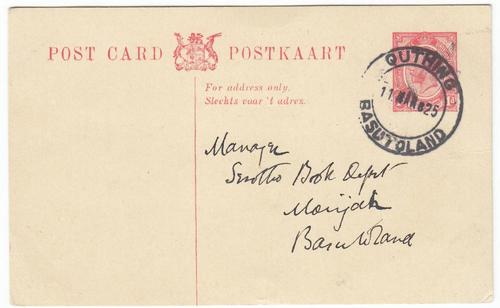 POST CARD POSTKAART
For address only.
Slechts voor 't adres.
QUTHING
11 MAR 25
BASUTOLAND
Manager
Sesotho Book Depot
Morijah
Basutoland